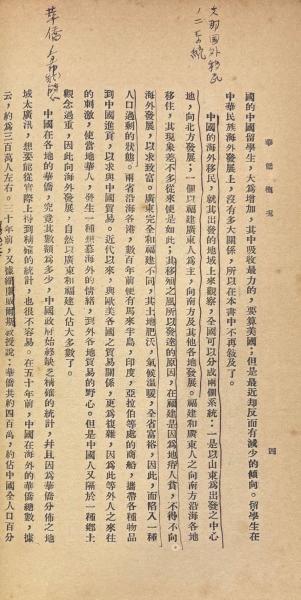 華僑概況
四
國的中國留學生,大為增加,其中吸收最力的,要算美國;但是最近却反而有減少的傾向。留學生在
中華民族海外發展上,沒有多大關係,所以在本書中不再敘及了。
中國的海外移民,就其出發的地域上來觀察,全國可以分成兩個系統:一是以山東為出發之中心
地,向北方發展;一個以福建廣東人為主,向南方及其他各地發展。福建和廣東人之向南方沿海各地
移住,其現象差不多從來便是如此;其移殖之風所以發達的原因,在福建是因為地瘠人貧,不得不向
海外發展,以求致富。廣東完全和福建不同,其土地肥沃,氣候溫暖,全省富裕,因此,而陷入一種
人口過剩的狀態。兩省沿海各港,數百年前便有馬來半島,印度,亞拉伯等處的商船,攜帶各種物品
到中國進貢,以求與中國貿易。近代以來,與歐美各國之貿易關係,更為複雜,因為此等外人之來往
的刺激,使當地華人,發生一種想慕海外的情緒,到外各地貿易的野心。但是中國人又隔於一種鄉土
觀念過重,因此向海外發展,自然以廣東和福建人佔大多數了。
中國在各地的華僑,究竟其數額為多少,中國政府始終缺乏精確的統計,并且因為華僑分佈之地
域太廣汎,想要能從實際上得到精確的統計,也很不容易。在五十年前,中國在海外的華僑總數,據
云,約為三百萬人左右。三十年前,又據威爾斯教授說:華僑共約四百萬,約佔中國全人口百分
國外移民
二系統
華僑